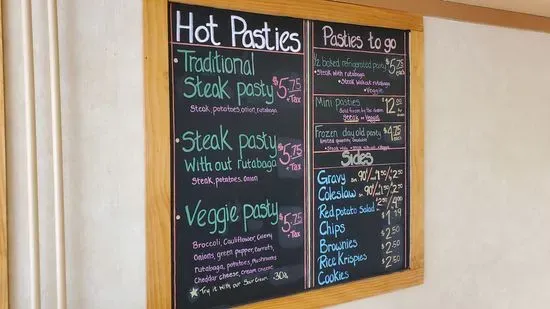 Hot Pasties
Traditional
Steak pasty $5.75
+ Tax
Steak, potatoes, onion, rutabaga
Steak pasty
With out rutabaga $5.75
+ Tax
Steak, potatoes, Onion
Veggie pasty $5.75
+ Tax
Broccoli, Cauliflower, Celery
Onions, green pepper, Carrots,
rutabaga, potatoes, Mushrooms
Cheddar cheese, cream cheese
Try it with our Sour Cream! .30¢
Pasties to go
1/2 baked refrigerated pasty $5.75 each
Steak with rutabaga
Steak without rutabaga
Veggie
Mini pasties $12.00
Sold frozen by the dozen
Steak or Veggie
Frozen, day old pasty $4.75
Sides
Gravy sm .90¢/ $1.50/ $2.50
Coleslaw sm .90¢/ $1.50/ $2.50
Red potato Salad
Chips $1.19
Brownies $2.50
Rice Krispies $2.50
Cookies $2.50